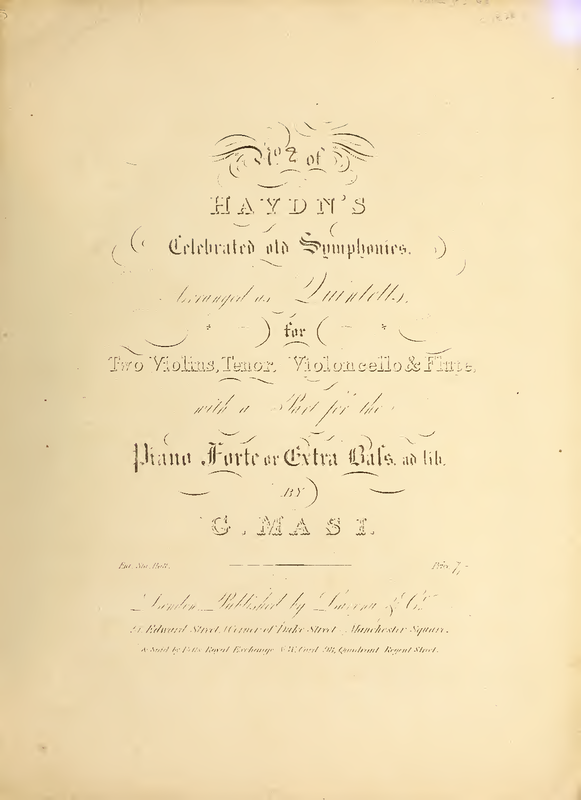 No. 2 of
HAYDN'S
Celebrated old Symphonies.
Arranged as Quintetts,
for
Two Violins, Tenor, Violoncello & Flute,
with a Part for the
Piano Forte or Extra Baſs, ad lib.
BY
G. MASI.
Ent. Sta. Hall. Price 7/-
London, Published by & Co.
Edward Street, Corner of Duke Street, Manchester Square.
& Sold by Royal Exchange & 98, Quadrant Regent Street.